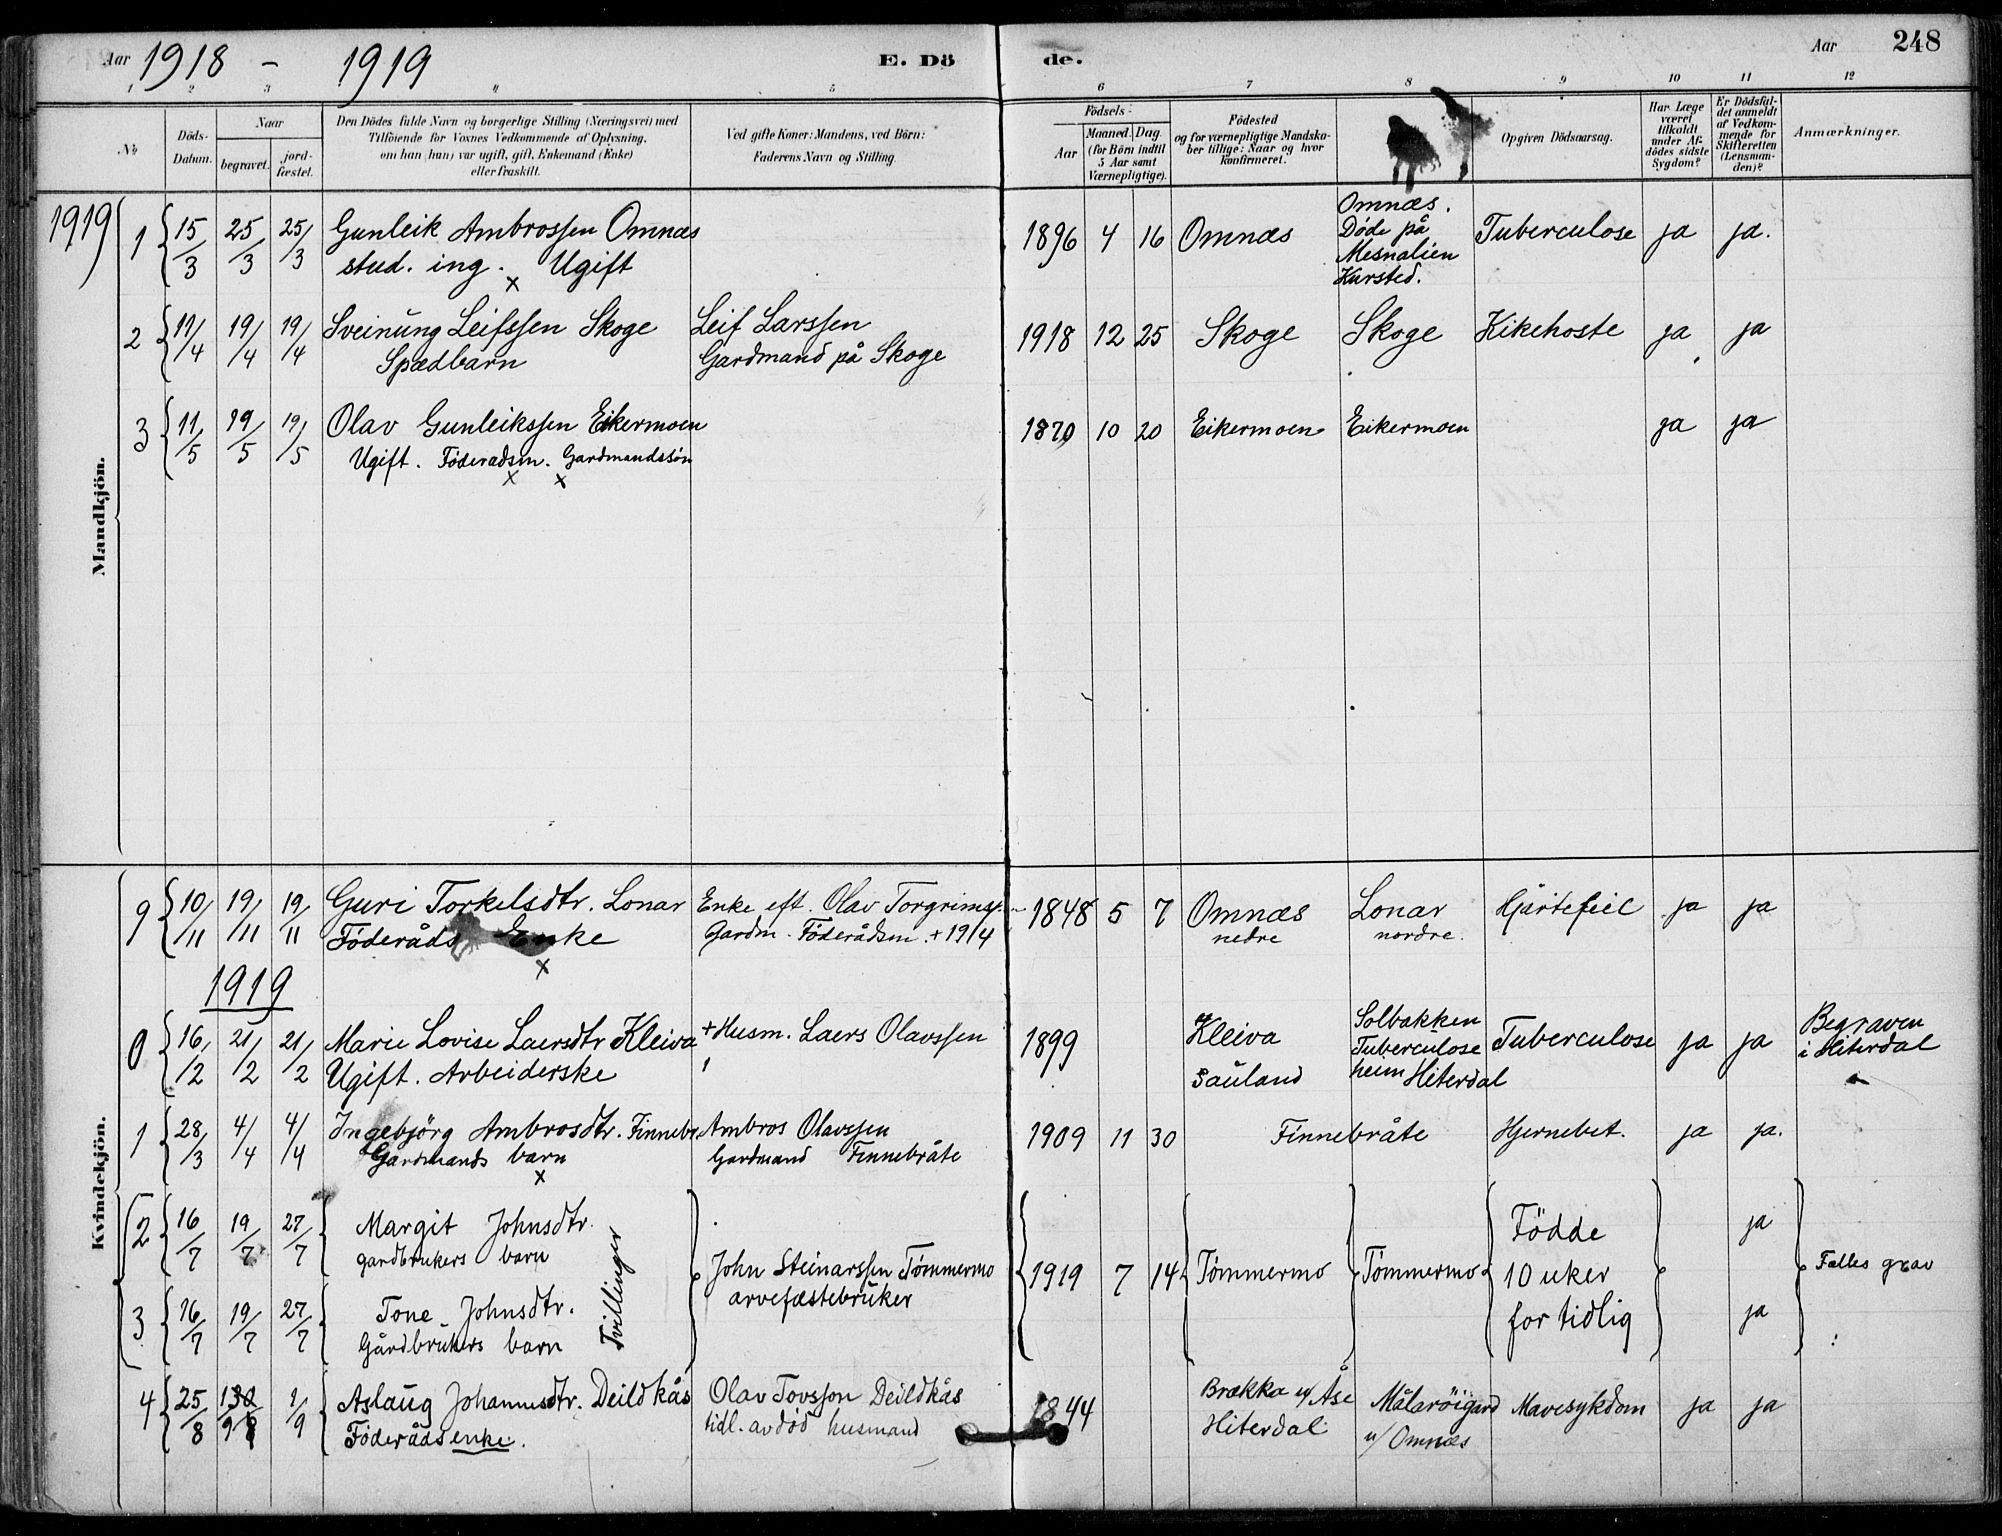 Aar 1918 - 1919 E. Dö de. Aar 248
1 2 3 4 5 6 7 8 9 10 11 12
No
Döds-
Datum.
Naar
begravet.
jord-
fæstet.
Den Dödes fulde Navn og borgerlige Stilling (Næringsvei) med
Tilföiende for Voxnes Vedkommende af Oplysning,
om han (hun) var ugift, gift, Enkemand (Enke)
eller fraskilt.
Ved gifte Koner: Mandens, ved Börn:
Faderens Navn og Stilling.
Födsels-
Aar
Maaned. Dag
(for Börn indtil
5 Aar samt
Værnepligtige).
Födested
og for værnepligtige Mandska-
ber tillige: Naar og hvor
konfirmeret.
Opgiven Dödsaarsag.
Har Læge
været
tilkaldt
under Af-
dödes sidste
Sygdom?
Er Dödsfal-
det anmeldt
af Vedkom-
mende for
Skifteretten
(Lensman-
den)?
Anmærkninger.
Mandkjön.
1919 1 15/3 25/3 25/3 Gunleik Ambrossen Omnæs 1896 4 16 Omnæs Omnæs. Tuberculose ja ja.
stud. ing. x Ugift Døde på
Mesnalien
Kursted.
2 11/4 19/4 19/4 Sveinung Leifssen Skoge Leif Larssen 1918 12 25 Skoge Skoge Kikehoste ja ja
Spædbarn Gardmand på Skoge
3 11/5 19/5 19/5 Olav Gunleikssen Eikermoen 1870 10 20 Eikermoen Eikermoen ja ja
Ugift. Föderadsm. Gardmandssön
x x
Kvindekjön.
9 10/11 19/11 19/11 Guri Torkelsdtr. Lonar Enke eft. Olav Torgrims. 1848 5 7 Omnæs Lonar Hjärtefeil ja ja
Föderåds Enke Gardm. Föderådsm. + 1914 nedre nordre.
x
1919
0 16/2 21/2 21/2 Marie Lovise Laersdtr Kleiva + Husm. Laers Olavssen 1899 Kleiva Solbakken Tuberculose ja ja Begraven
Ugift. Arbeiderske Sauland Tuberculose i Hiterdal
heim Hiterdal
1 28/3 4/4 4/4 Ingebjörg Ambrosdtr. Finnebr. Ambros Olavssen 1909 11 30 Finnebråte Hjernebet. ja ja.
Gardmands barn Gardmand Finnebråte
x
2 16/7 19/7 27/7 Margit Johnsdtr. Födde ja
gardbrukers barn
Tvillinger
John Steinarssen Tömmermo 1919 7 14 Tömmermo Tömmermo 10 uker Felles grav
arvefæstebruker
3 16/7 19/7 27/7 Tone Johnsdtr. for tidlig ja
Gårdbrukers barn
4 25/8 1/9 1/9 Aslaug Johannesdtr. Deildkås Olav Tovsson Deildkås 1844 Brækka u/ Åse Målaröigard Mavesykdom ja ja
Föderådsenke. tidl. avdöd husmand Hiterdal u/ Omnæs